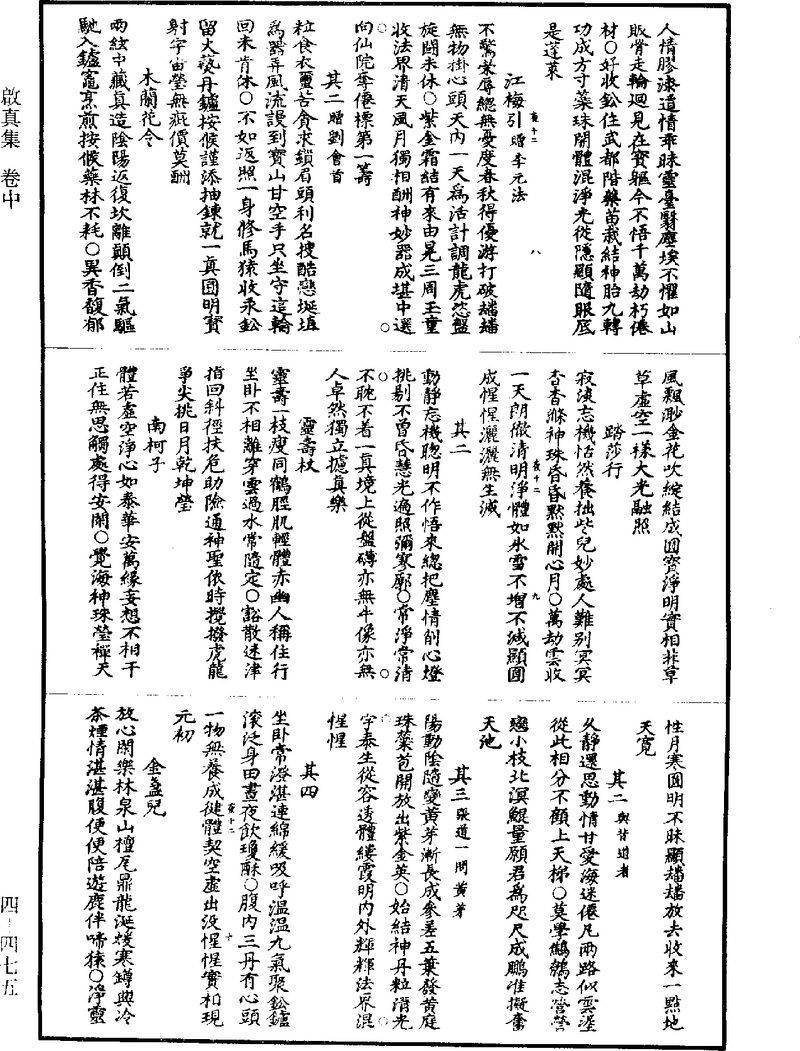 啟真集 卷中
人情膠漆遣情乖昧靈臺翳塵埃不懼如山
販骨走輪迴見在寶軀今不悟千萬劫朽倦
材○好收鈆住武都階藥苗栽結神胎九轉
功成方寸蘂珠開體混淨光從隱顯隨眼底
是蓬萊
江梅引 贈李元法
不驚榮辱緫無憂度春秋得優游打破
無物掛心頭天內一天為活計調龍虎恣盤
旋鬪未休○紫金霜結有來由晃三周玉童
收法界清天風月獨相酬神妙器成堪中選
向仙院奪僊標第一籌
其二 贈劉會首
粒食衣蠒苦貪求鎖眉頭利名搜酷戀埏埴
為器弄風流謾到寶山甘空手只坐守這輪
回未肯休○不如返照一身修馬猿收汞鈆
留火發丹鑪按候謹添抽鍊就一真圓明寶
射宇宙瑩無疵價莫酬
木蘭花令
兩絃中藏真造陰陽返復坎離顛倒二氣驅
馳入鑪竈烹煎按候藥林不耗○異香馥郁
風飄渺金花吹綻結成圓寶淨明實相非草
草虛空一樣大光融照
踏莎行
寂淡忘機怡然養拙些兒妙處人難別冥冥
杳杳滌神珠昏昏默默開心月○萬劫雲收
一天朗徹清明淨體如氷雪不增不減顯圓
成惺惺灑灑無生滅
其二
動靜忘機聰明不作悟來緫把塵情削心燈
挑剔不曾昏慧光遍照彌寥廓○常淨常清
不耽不着一真境上從盤礴亦無牛像亦無
人卓然獨立攄真樂
靈壽杖
靈壽一枝瘦同鶴脛肌輕體赤幽人稱住行
坐卧不相離穿雲過水常隨定○豁散迷津
指回斜徑扶危助險通神聖依時攪撥虎龍
爭尖挑日月乾坤瑩
南柯子
體若虛空淨心如泰華安萬緣妄想不相干
正住無思觸處得安閑○覺海神珠瑩禪天
性月寒圓明不昧顯 放去收來一點地
天寬
其二 與昔道者
久靜還思動情甘愛海迷僊凡兩路似雲涇
從此相分不顧上天梯○莫學鷦鷯志營營
戀小枝北溟鯤量願君為咫尺成鵬准擬奮
天池
其三 張道一問黃芽
陽動陰隨變黃芽漸長成參差五葉發黃庭
珠蘂苞開放出紫金英○始結神丹粒清光
宇泰生從容透體縷霞明內外輝輝法界混
惺惺
其四
坐卧常澄湛連綿緩吸呼溫溫九氣聚鈆鑪
滾泛身田晝夜飲瓊酥○腹內三丹有心頭
一物無養成健體契空虛出没惺惺實相現
元初
金盞兒
放心閑樂林泉山檀
茶煙情湛湛腹便便陪遊鹿伴啼猿○淨靈
四-四七五